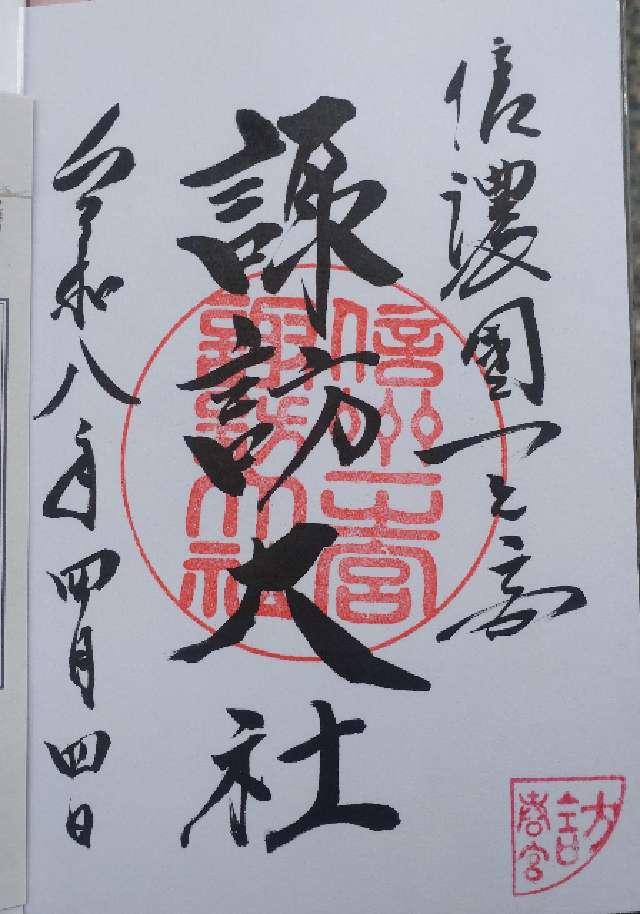 信濃國一之宮
諏訪大社
令和八年四月四日
信州一之宮
諏訪大社
訪
春宮